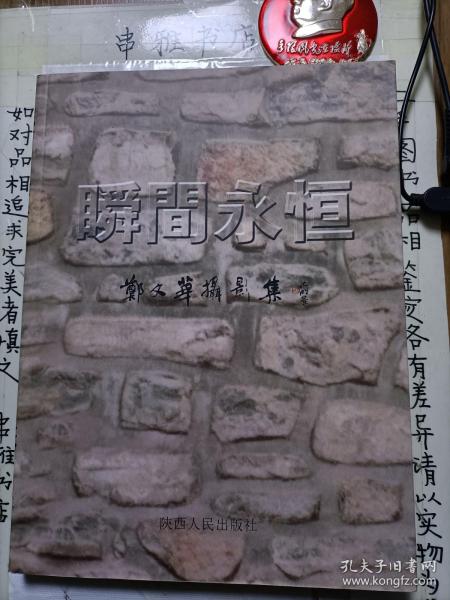 串雅书店
瞬間永恒
鄭文華攝影集
陕西人民出版社
如对品相追求完美者慎交
串雅书店
图书品相鉴定各有差异请以实物为
孔夫子旧书网
www.kongfz.com